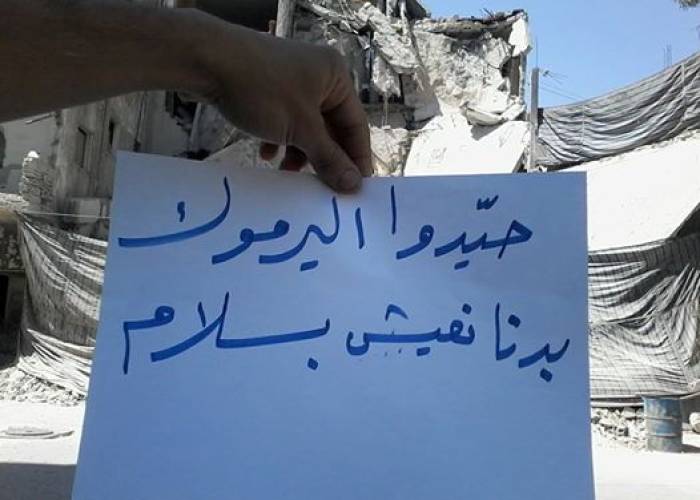 حيّدوا اليرموك
بدنا نعيش بسلام